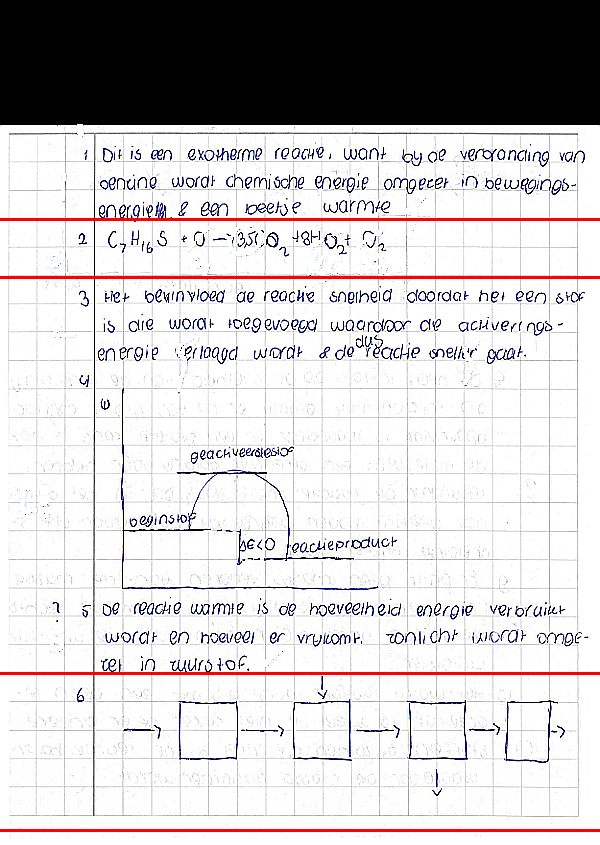 1 Dit is een exotherme reactie, want bij de verbranding van
benzine wordt chemische energie omgezet in bewegings-
energie & een beetje warmte
2 C7H16S + O → 3,5CO2 + 8H O2 + O2
3 Het beïnvloed de reactie snelheid doordat het een stof
is die wordt toegevoegd waardoor de activerings-
energie verlaagd wordt & de dus reactie sneller gaat.
4
geactiveerdestof
beginstof
ΔE<0 reactieproduct
? 5 De reactie warmte is de hoeveelheid energie verbruikt
wordt en hoeveel er vrijkomt. zonlicht wordt omge-
zet in zuurstof.
6